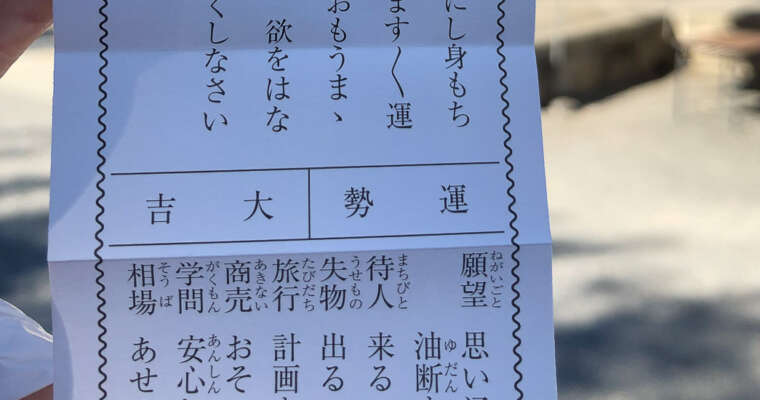 にし身もち
ます〱運
おもうまゝ
欲をはな
くしなさい
運勢
大吉
願望 ねがいごと 思い
油断 ゆだん
待人 まちびと 来る
失物 うせもの 出る
旅行 たびだち 計画
商売 あきない おそ
学問 がくもん 安心 あんしん
相場 そうば あせ